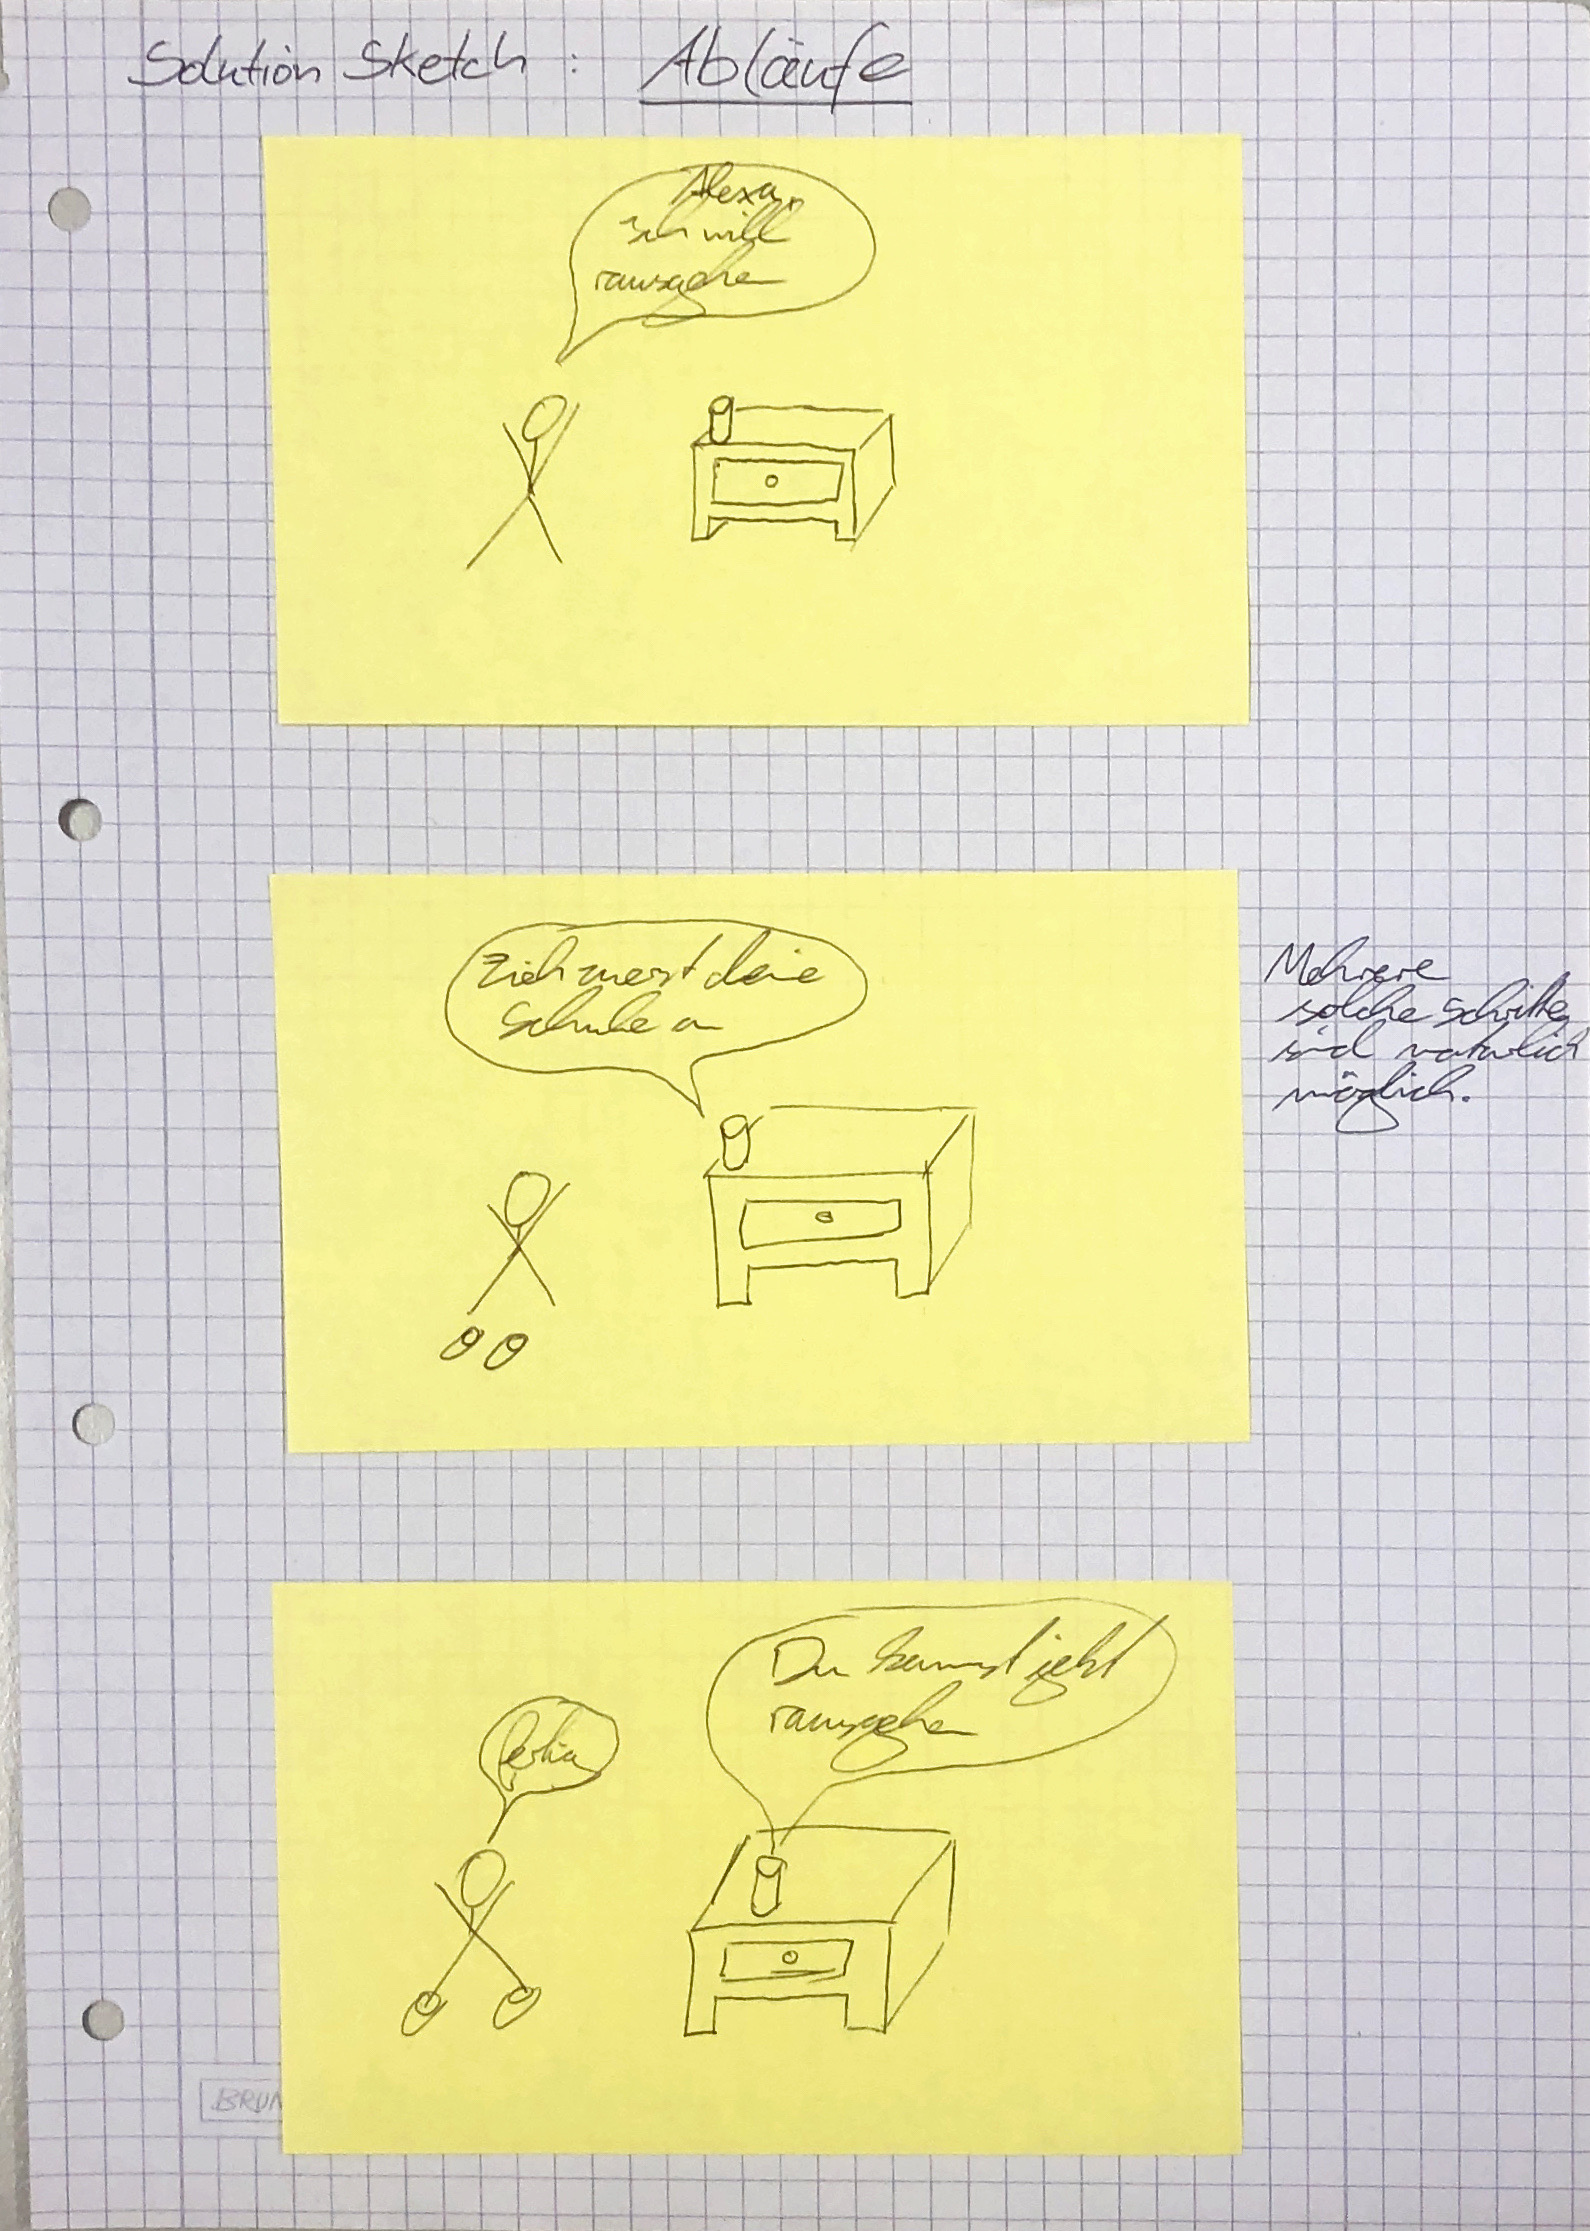 Solution Sketch : Abläufe
Alexa,
Ich will
rausgehen
Zieh zuerst deine
Schuhe an
Mehrere
solche Schritte
sind natürlich
möglich.
fertig
Du kannst jetzt
rausgehen
BRUN